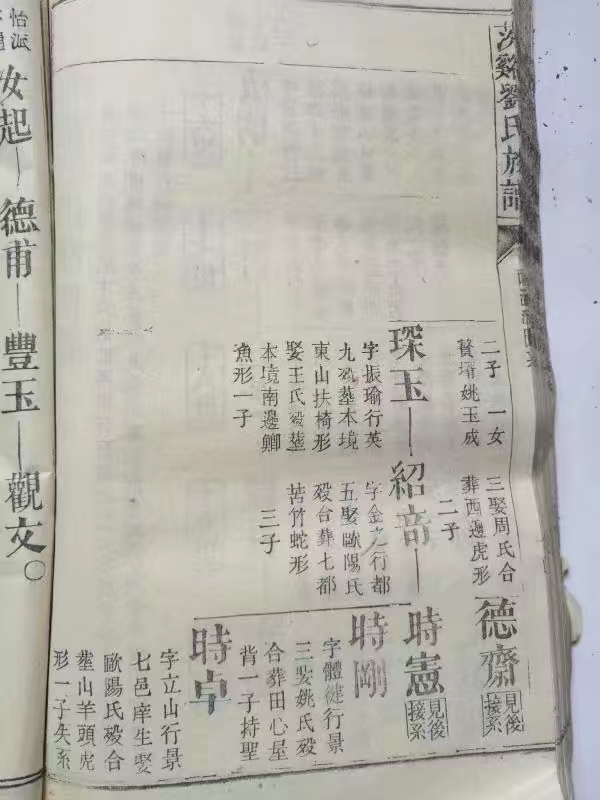 茨谿劉氏族譜
二子 一女
贅壻姚玉成
三娶周氏合
葬西邊虎形
二子
德齋
見後
接系
琛玉
紹奇
時憲
見後
接系
字振瑜行英
九歿墓本境
東山扶椅形
娶王氏歿塟
本境南邊鯽
魚形一子
字金之行都
五娶歐陽氏
殁台葬七都
苦竹蛇形
三子
時剛
字體健行景
三娶姚氏殁
合葬田心屋
背一子持聖
時卓
字立山行景
七邑庠生娶
歐陽氏殁合
塟山羊頭虎
形一子失系
怡派
女起
德甫
豐玉
觀文